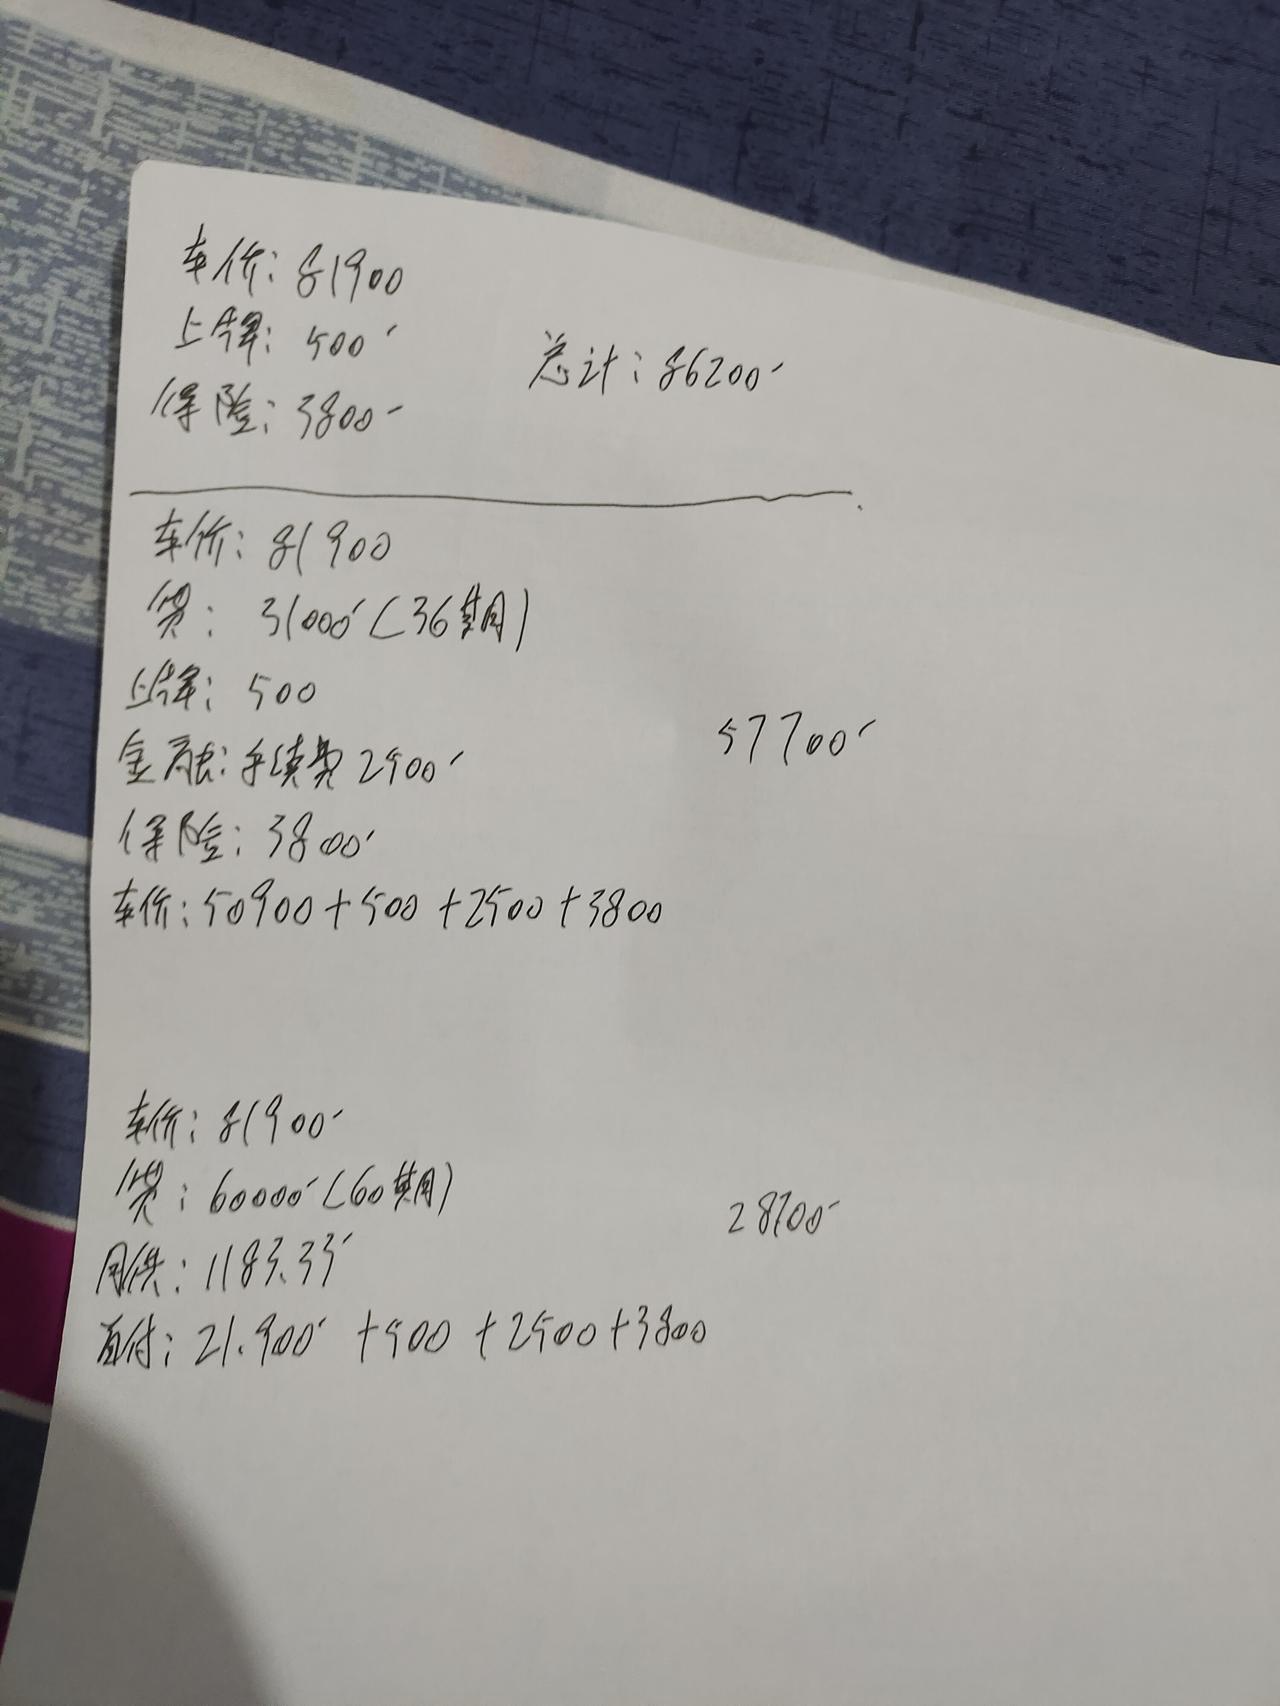 车价：81900
上牌：500
保险：3800
总计：86200
车价：81900
贷：31000（36期）
上牌：500
金融：手续费2500
保险：3800
57700
车价：50900+500+2500+3800
车价：81900
贷：60000（60期）
月供：1183.33
首付：21.900+500+2500+3800
28700